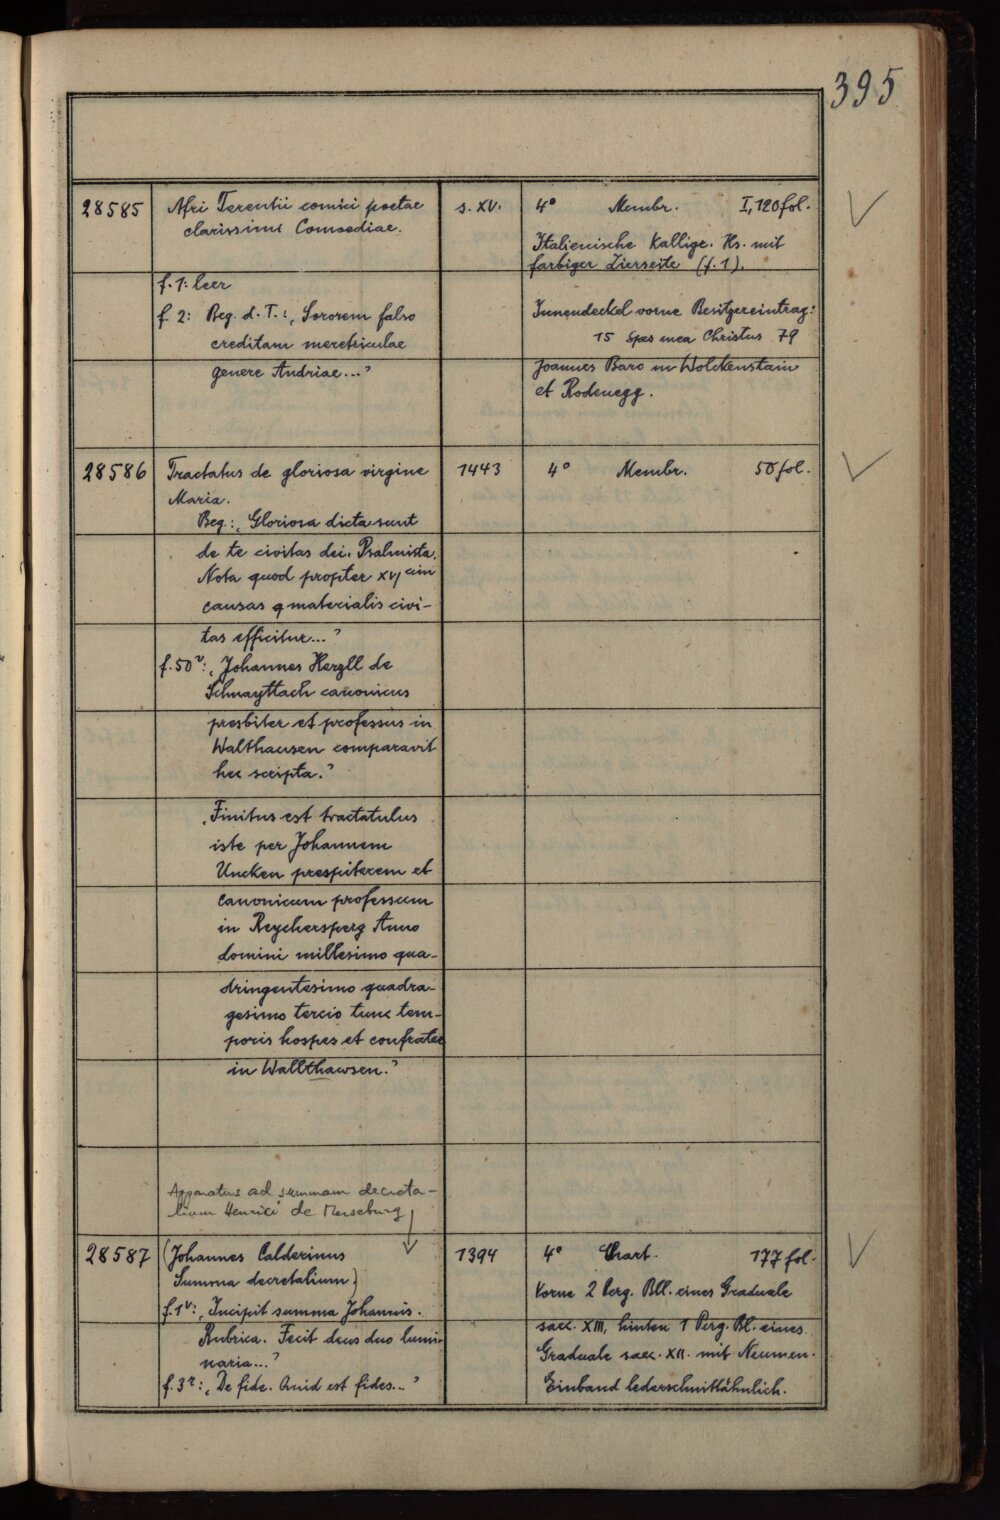 395
28585 Afri Terentii comici poetae s. XV. 4° Membr. I, 120 fol.
clarissimi Comoediae.
Italienische Kalligr. Hs. mit
farbiger Zierseite (f. 1).
f. 1: leer
f. 2: Beg. d. T.: ‚Sororem falso
creditam meretriculae
genere Andriae...’
Innendeckel vorne Besitzereintrag:
15 Spes mea Christus 79
Joannes Baro in Wolckenstain
et Rodenegg.
28586 Tractatus de gloriosa virgine 1443 4° Membr. 50 fol.
Maria.
Beg.: ‚Gloriosa dicta sunt
de te civitas dei. Psalmista.
Nota quod propter XVI cim
causas q materialis civi-
tas efficitur...’
f. 50v: ‚Johannes Herzll de
Schnayttach canonicus
presbiter et professus in
Walthausen comparavit
hec scripta.’
‚Finitus est tractatulus
iste per Johannem
Uncken prespiterem et
canonicum professum
in Reychersperg Anno
domini millesimo qua-
dringentesimo quadra-
gesimo tercio tunc tem-
poris hospes et confrater
in Wallthawsen.’
Apparatus ad summam decreta-
lium Henrici de Merseburg
28587 (Johannes Calderinus 1394 4° Chart. 177 fol.
Summa decretalium)
f. 1v: ‚Incipit summa Johannis.
Rubrica. Fecit deus duo lumi-
naria...’
f. 3r: ‚De fide. Quid est fides...’
Vorne 2 Perg. Bll. eines Graduale
saec. XIII, hinten 1 Perg. Bl. eines
Graduale saec. XII. mit Neumen.
Einband lederschnittähnlich.